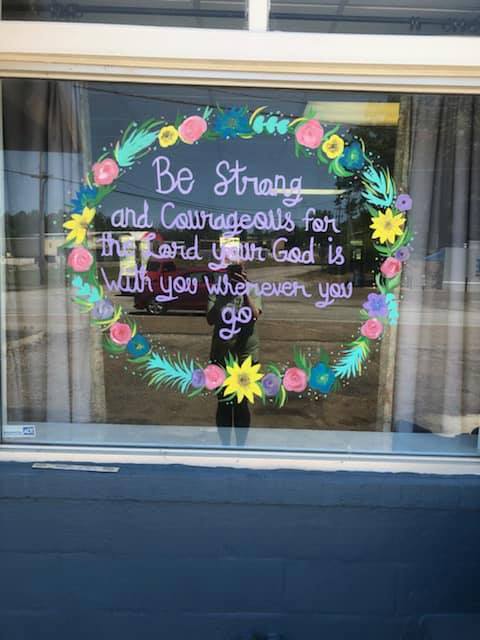 Be Strong
and Courageous for
the Lord your God is
with you wherever you
go.
ADT